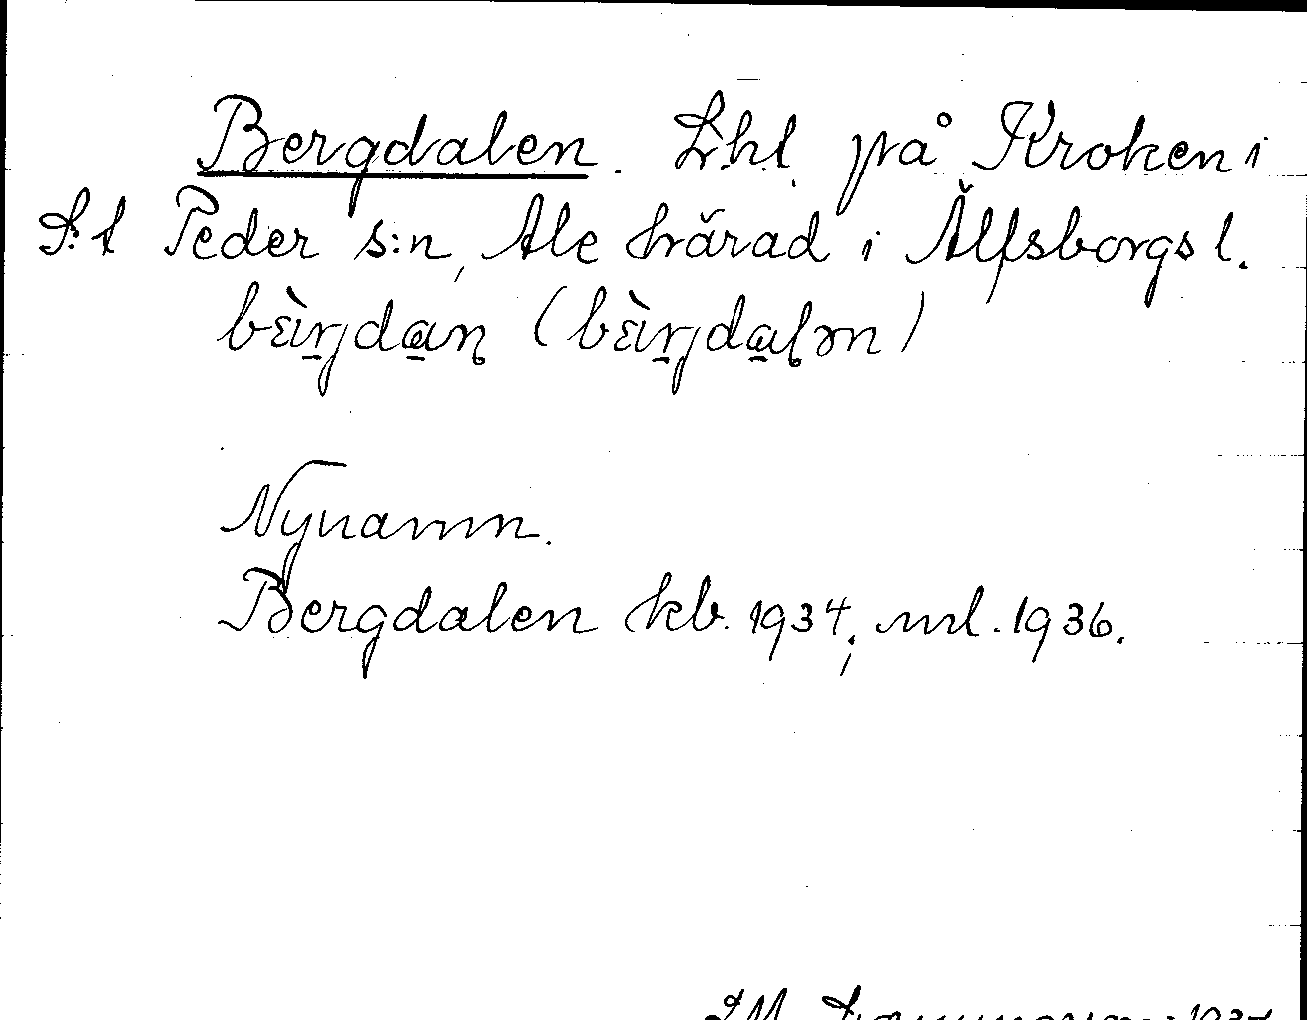 Bergdalen. Lht. på Kroken i
S:t Peder s:n, Ale härad i Älfsborgs l.
Nynamn.
Bergdalen kb. 1934; ml. 1936.